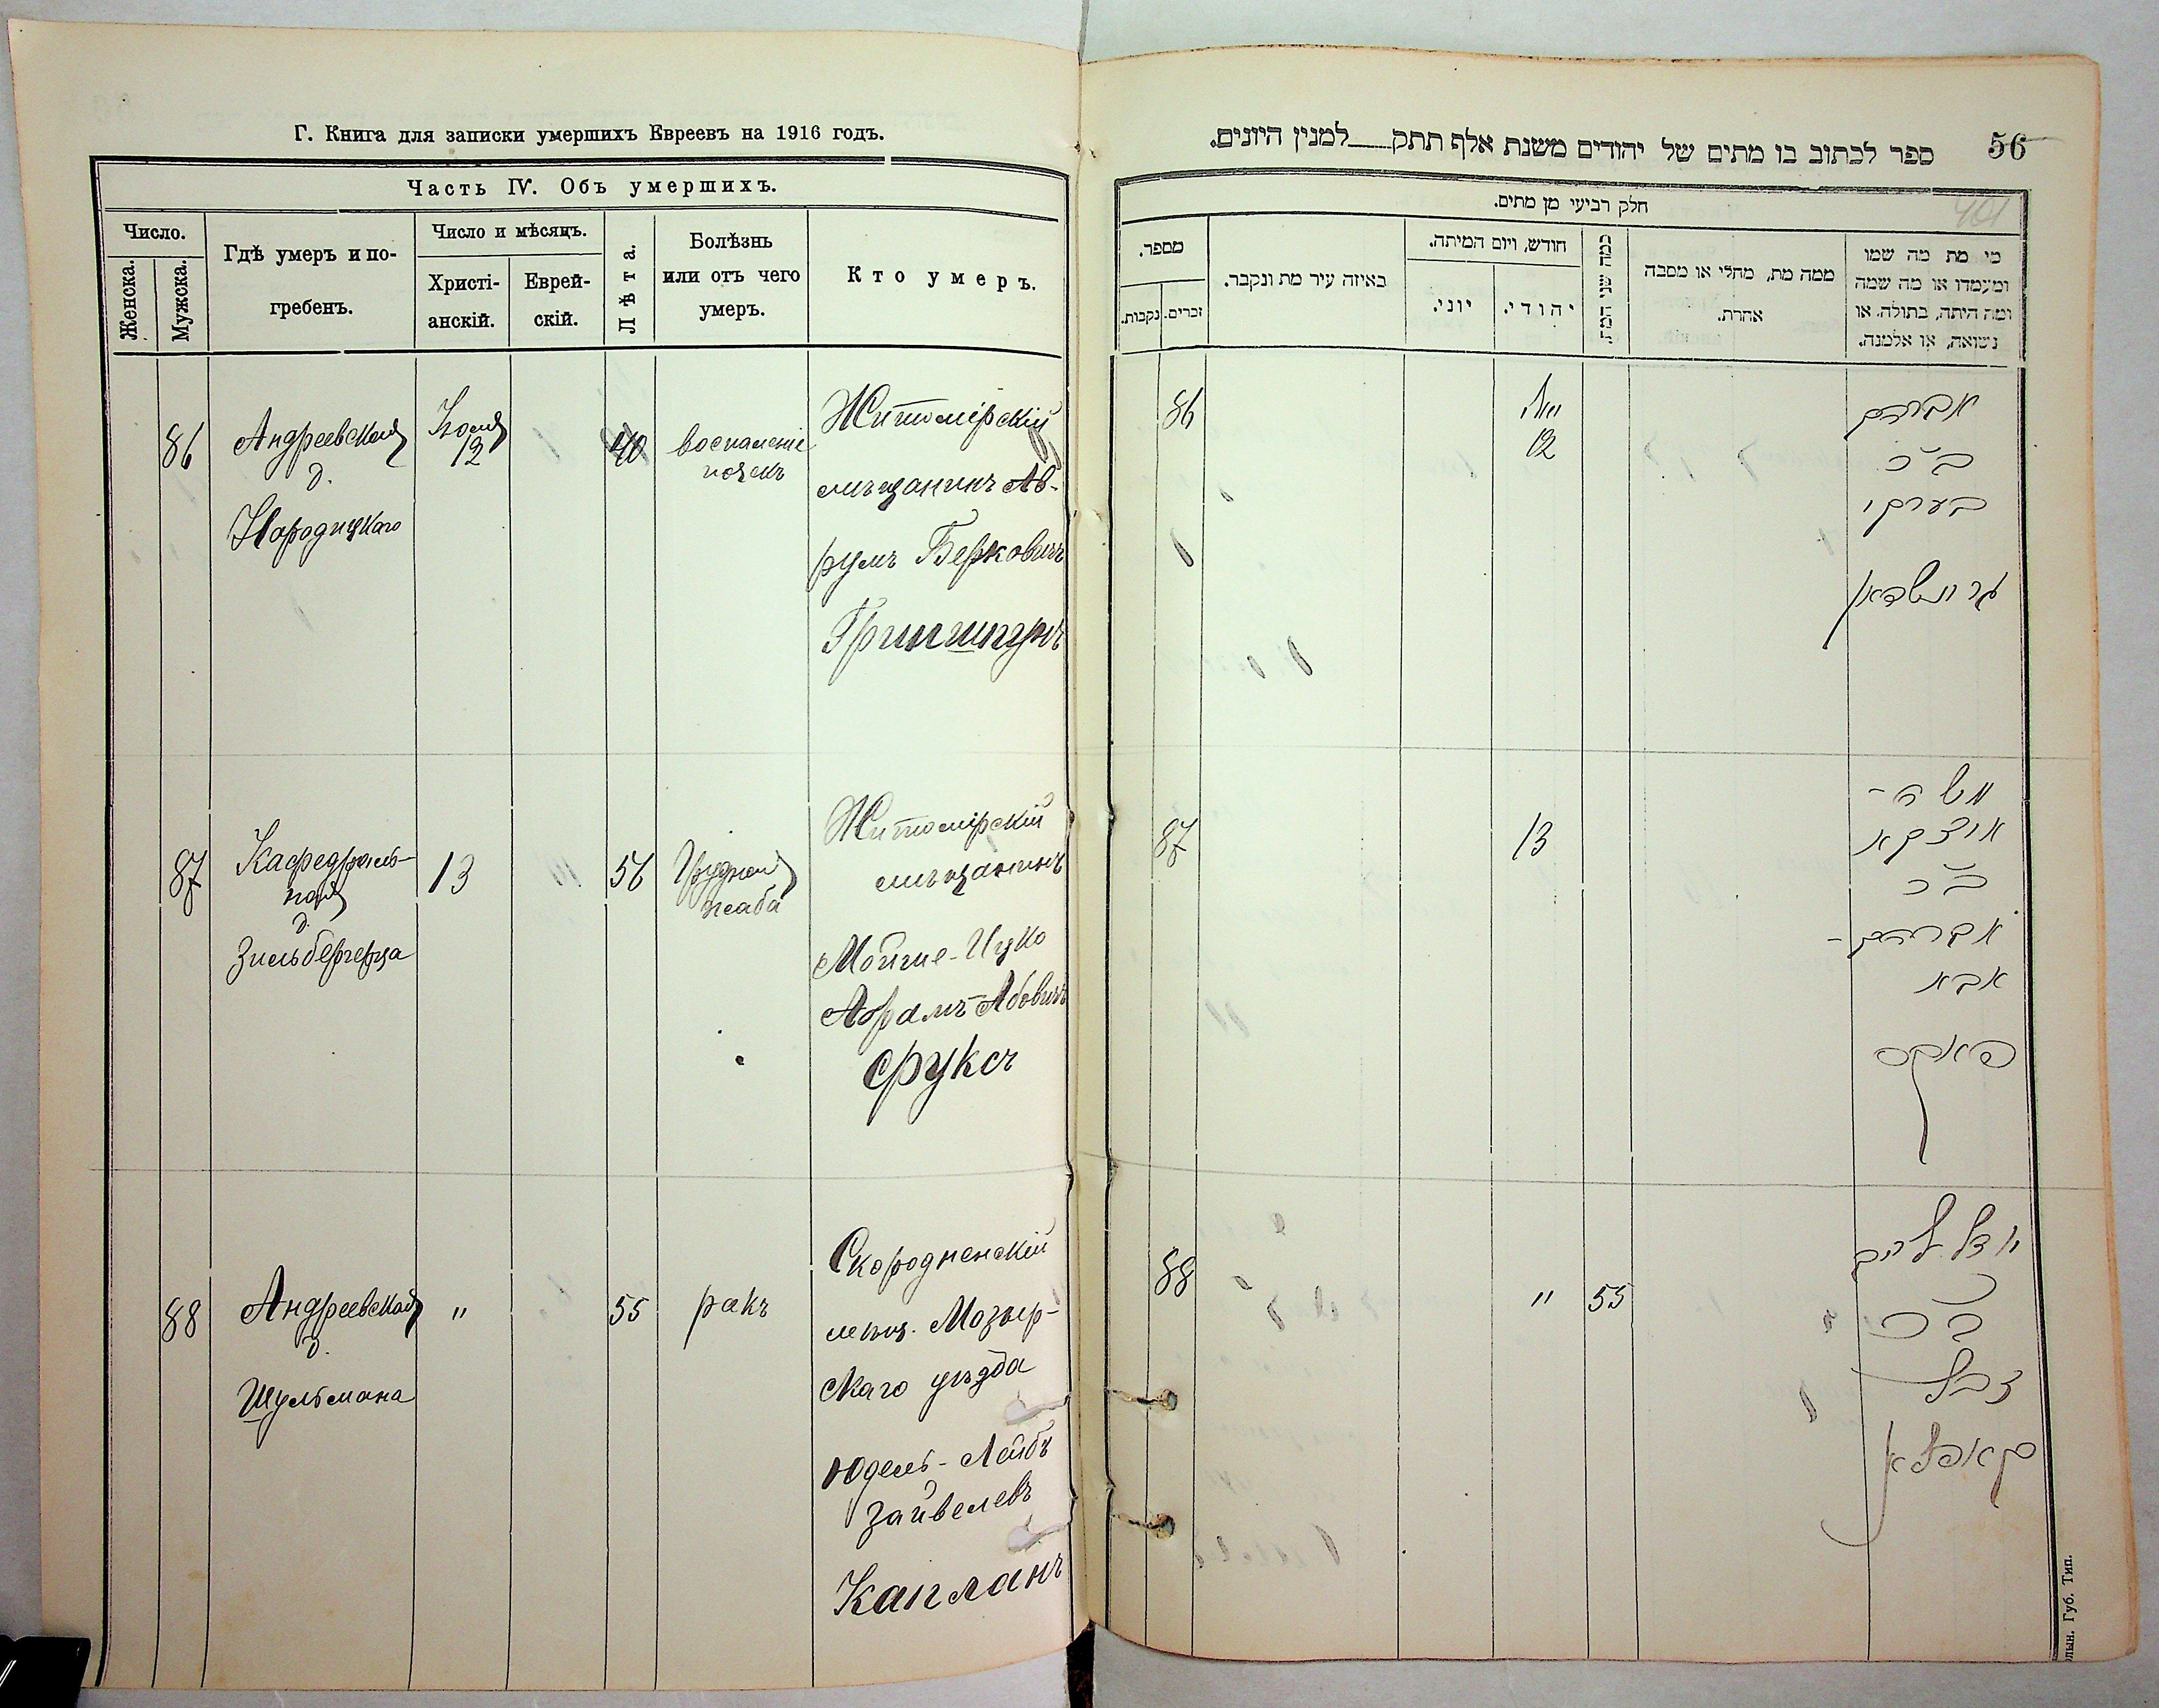 Г. Книга для записки умершихъ Евреевъ на 1916 годъ.
Часть IV. Объ умершихъ.
Число.
Женска.
Мужска.
Гдѣ умеръ и по-
гребенъ.
Число и мѣсяцъ.
Христі-
анскій.
Еврей-
скій.
Лѣта.
Болѣзнь
или отъ чего
умеръ.
Кто умеръ.
86
Андреевская
д.
Народицкаго
Іюля
12
40
воспаленіе
почекъ
Житомірскій
мѣщанинъ Ав-
румъ Берковичъ
Гриншпунъ
87
Кафедраль-
ная
д.
Зильбергерца
13
56
Грудная
жаба
Житомірскій
мѣщанинъ
Мойше-Ицко
Абрамъ-Абовичъ
Фуксъ
88
Андреевская
д.
Шульмана
"
55
ракъ
Скородненскій
мѣщ. Мозыр-
скаго уѣзда
Юдель-Лейбъ
Зайвелевъ
Капланъ
56
ספר לכתוב בו מתים של יהודים משנת אלף תתק למנין היונים.
חלק רביעי מן מתים.
מי מת מה שמו
ומעמדו או מה שמה
ומה היתה, בתולה, או
נשואה, או אלמנה.
ממה מת, מחלי או מסבה
אחרת.
כמה שני המת
חודש, ויום המיתה.
יהודי.
יוני.
באיזה עיר מת ונקבר.
מספר.
זכרים.
נקבות.
אברהם
ב״ר
בערקי
86
יולי
12
משה-
איצקא
ב״ר
אברהם-
אבא
פאקס
87
13
יודל ליב
ב״ר
זביל
קאפלאן
88
"
55
Губ. Тип.